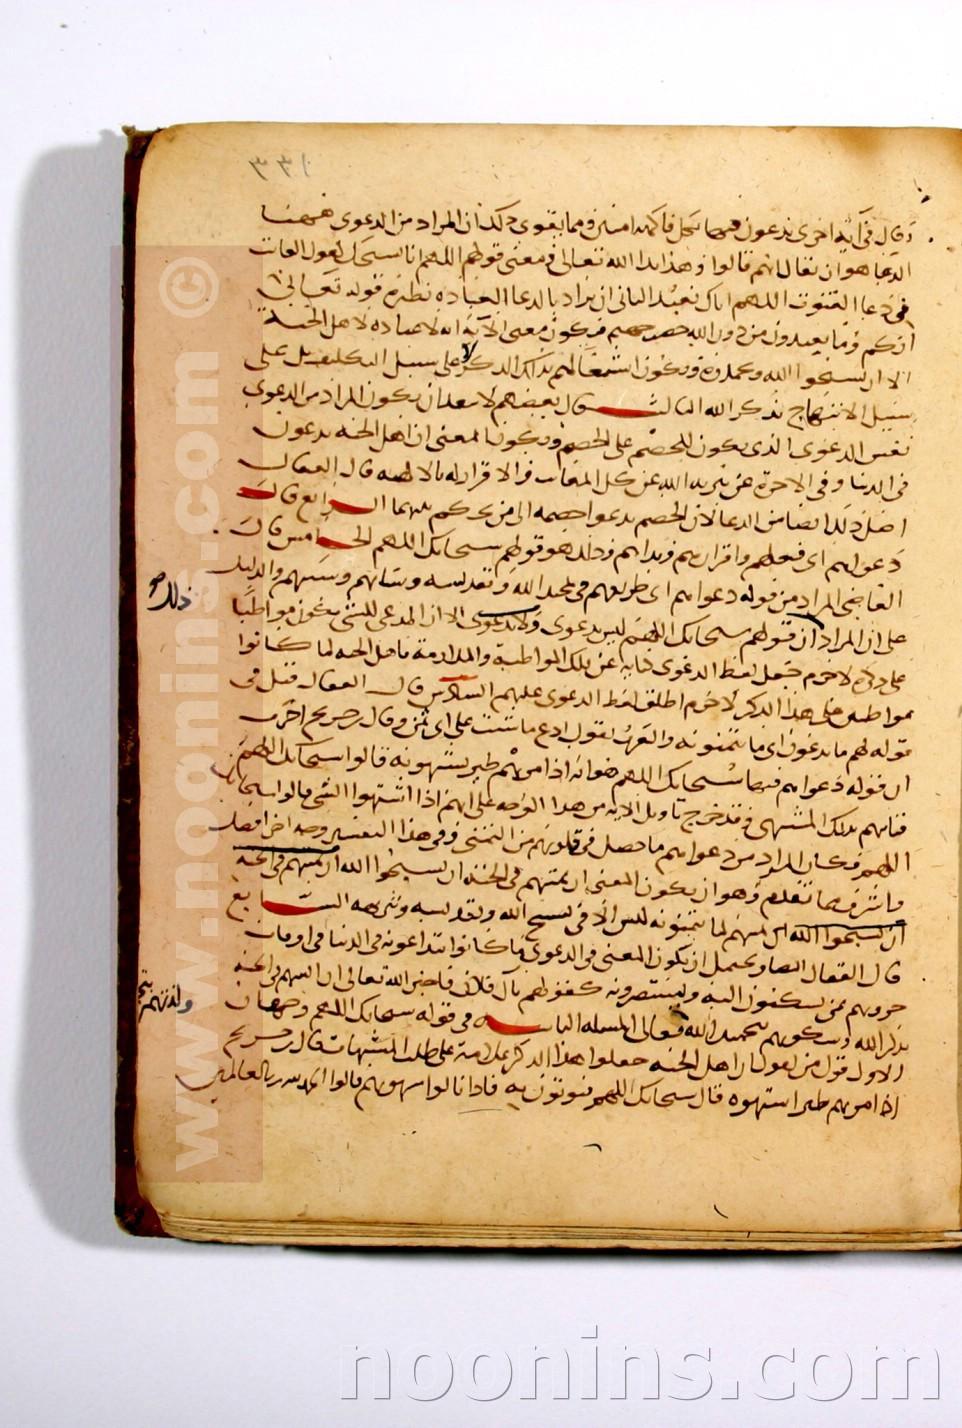 ٣٣١
وقال في آية اخرى يدعون فيها بكل فاكهة امنين ومما يقوى ذلك ان المراد من الدعوى ههنا
الدعا هو ان يقال انهم قالوا وهذا ندا الله تعالى ومعنى قولهم اللهم انا نسبحك كقول القانت
في دعا القنوت اللهم اياك نعبد الثاني ان يراد بالدعا العبادة نظيره قوله تعالى
وما تعبدون من دون الله فيكون معنى الآية انه لا عبادة لاهل الجنة
الا ان يسبحوا الله ويحمدوه ويكون اشتغالهم بذلك الذكر لا على سبيل التكليف بل على
سبيل الابتهاج بذكر الله الثالث قال بعضهم لا يبعد ان يكون المراد من الدعوى
نفس الدعوى الذي يكون للخصم على الخصم ويكون المعنى ان اهل الجنة يدعون
في الدنيا وفي الاخرة عن تنزيه الله عن كل المعايب والاقرار له بالالهية قال القفال
اصل ذلك ايضا من الدعا لان الخصم يدعو خصمه الى من يحكم بينهما الرابع قال
دعواهم اى فعلهم واقرارهم وذلك هو قولهم سبحانك اللهم الخامس قال
القاضي المراد من قوله دعواهم اى طريقهم في تمجيد الله وتقديسه وشانهم وسنتهم والدليل
على ان المراد ان قولهم سبحانك اللهم ليس بدعوى ولا بدعوى الا ان المدعى للشي يكون مواظبا
ذلك
على ذكره لا جرم جعل لفظ الدعوى كناية عن تلك المواظبة والملازمة فاهل الجنة لما كانوا
مواظبين على هذا الذكر لا جرم اطلق لفظ الدعوى عليهم السادس قال القفال قيل في
قوله لهم ما يدعون اى ما يتمنونه والعرب تقول ادع ما شئت على اى تمن وقال ابن جريج اخبرت
ان قوله دعواهم فيها سبحانك اللهم هو انه اذا مر بهم طير يشتهونه قالوا سبحانك اللهم
فياتيهم بذلك المشتهى فقد خرج تاويل الاية من هذا الوجه على انهم اذا اشتهوا الشي قالوا سبحانك
اللهم فكان المراد من دعواهم ما حصل في قلوبهم من التمنى وفي هذا التفسير وجه اخر افضل
واشرف مما تقدم وهو ان يكون المعنى ان تمنيهم في الجنة ان يسبحوا الله ان تمنيهم في الجنة
ان يسبحوا الله اى تمنيهم لما يتمنونه ليس الا في تسبيح الله وتقديسه وتنزيهه السابع
قال القفال ايضا ويحتمل ان يكون المعنى في الدعوى ما كانوا يتداعونه في الدنيا في اوقات
حروبهم ممن يسكنون اليه ويستنصرونه كقولهم يآل فلان فاخبر الله تعالى ان انسهم في الجنة
ولذتهم
بذكر الله وسكونهم بتحميد الله تعالى المسله الثانية في قوله سبحانك اللهم وجهان
الاول قول من يقول ان اهل الجنة جعلوا هذا الذكر علامة على طلب المشتهيات قال ابن جريج
اذا مر بهم طير اشتهوه قال سبحانك اللهم فيوتون به فاذا نالوا شهوتهم قالوا الحمد لله رب العالمين
www.noonins.com ©
noonins.com